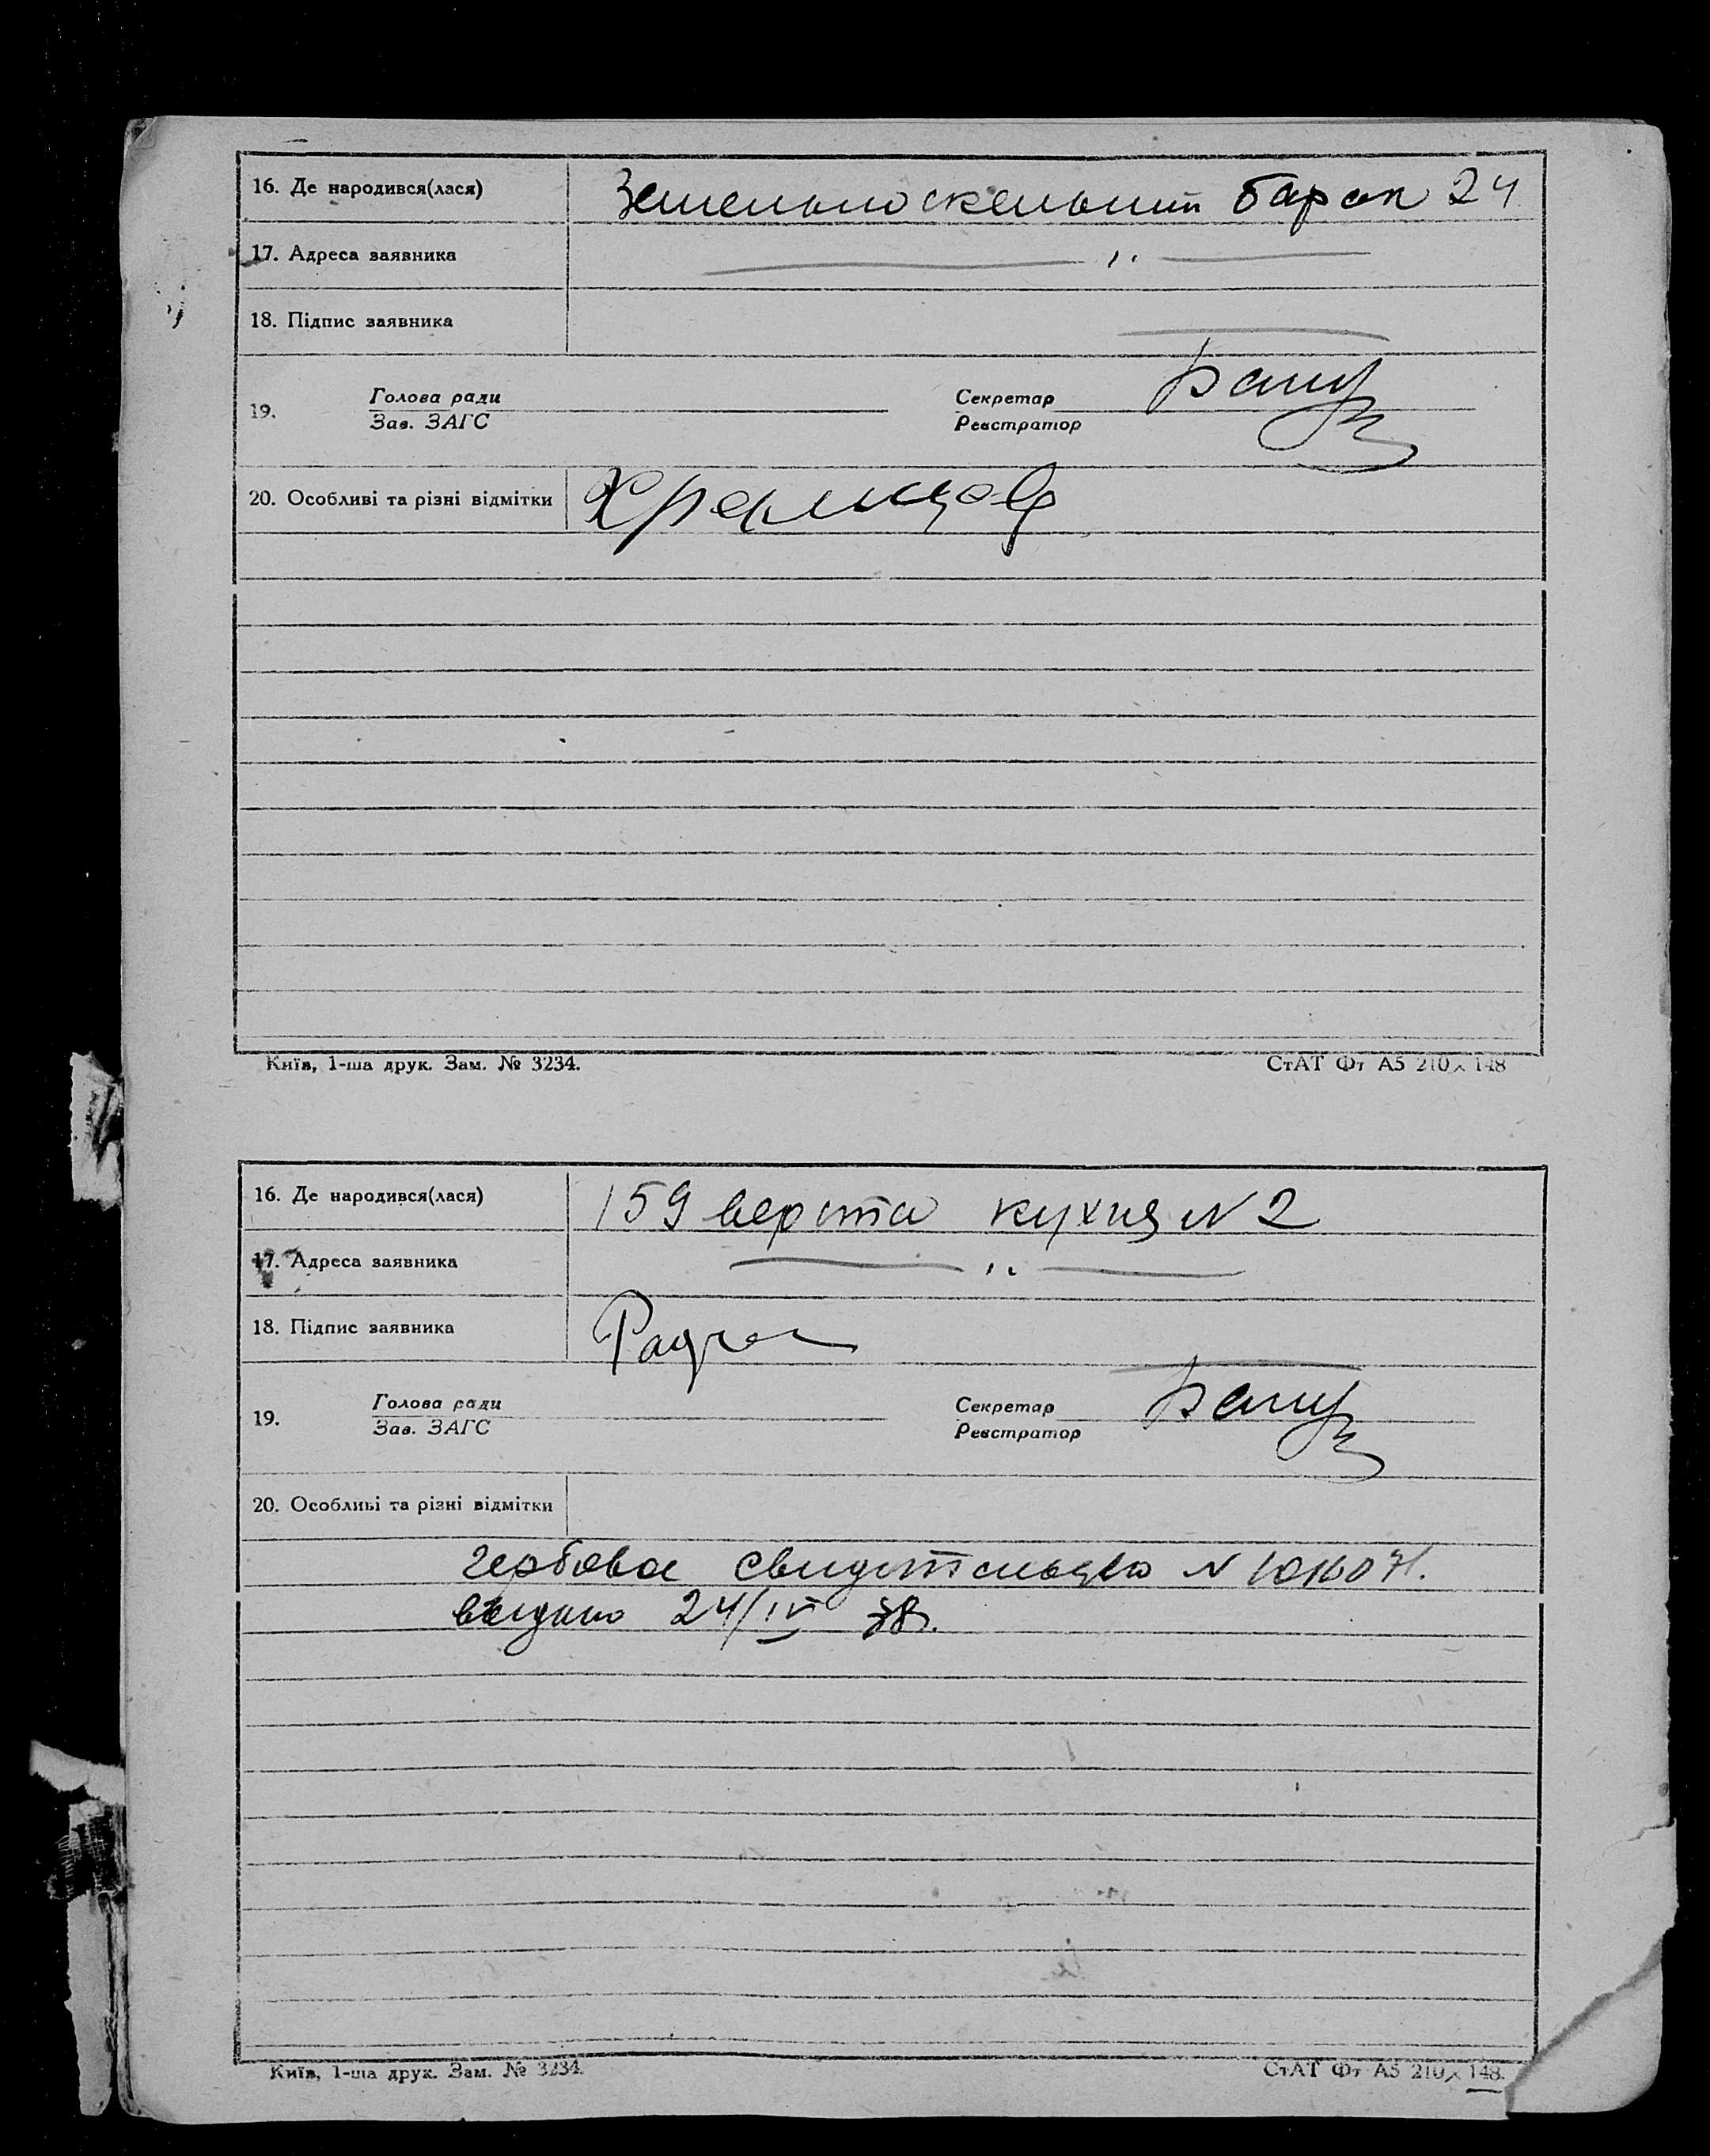 16. Де народився(лася) Земельноскельний барак 24
17. Адреса заявника — " —
18. Підпис заявника
19. Голова ради Секретар
Зав. ЗАГС Реєстратор
20. Особливі та різні відмітки
Київ, 1-ша друк. Зам. № 3234. СтАТ Фт А5 210 × 148
16. Де народився(лася) 159 верста кухня N 2
17. Адреса заявника — " —
18. Підпис заявника
19. Голова ради Секретар
Зав. ЗАГС Реєстратор
20. Особливі та різні відмітки
гербовое N 1016071.
выдано 24/IV 38г.
Київ, 1-ша друк. Зам. № 3234. СтАТ Фт А5 210 × 148.